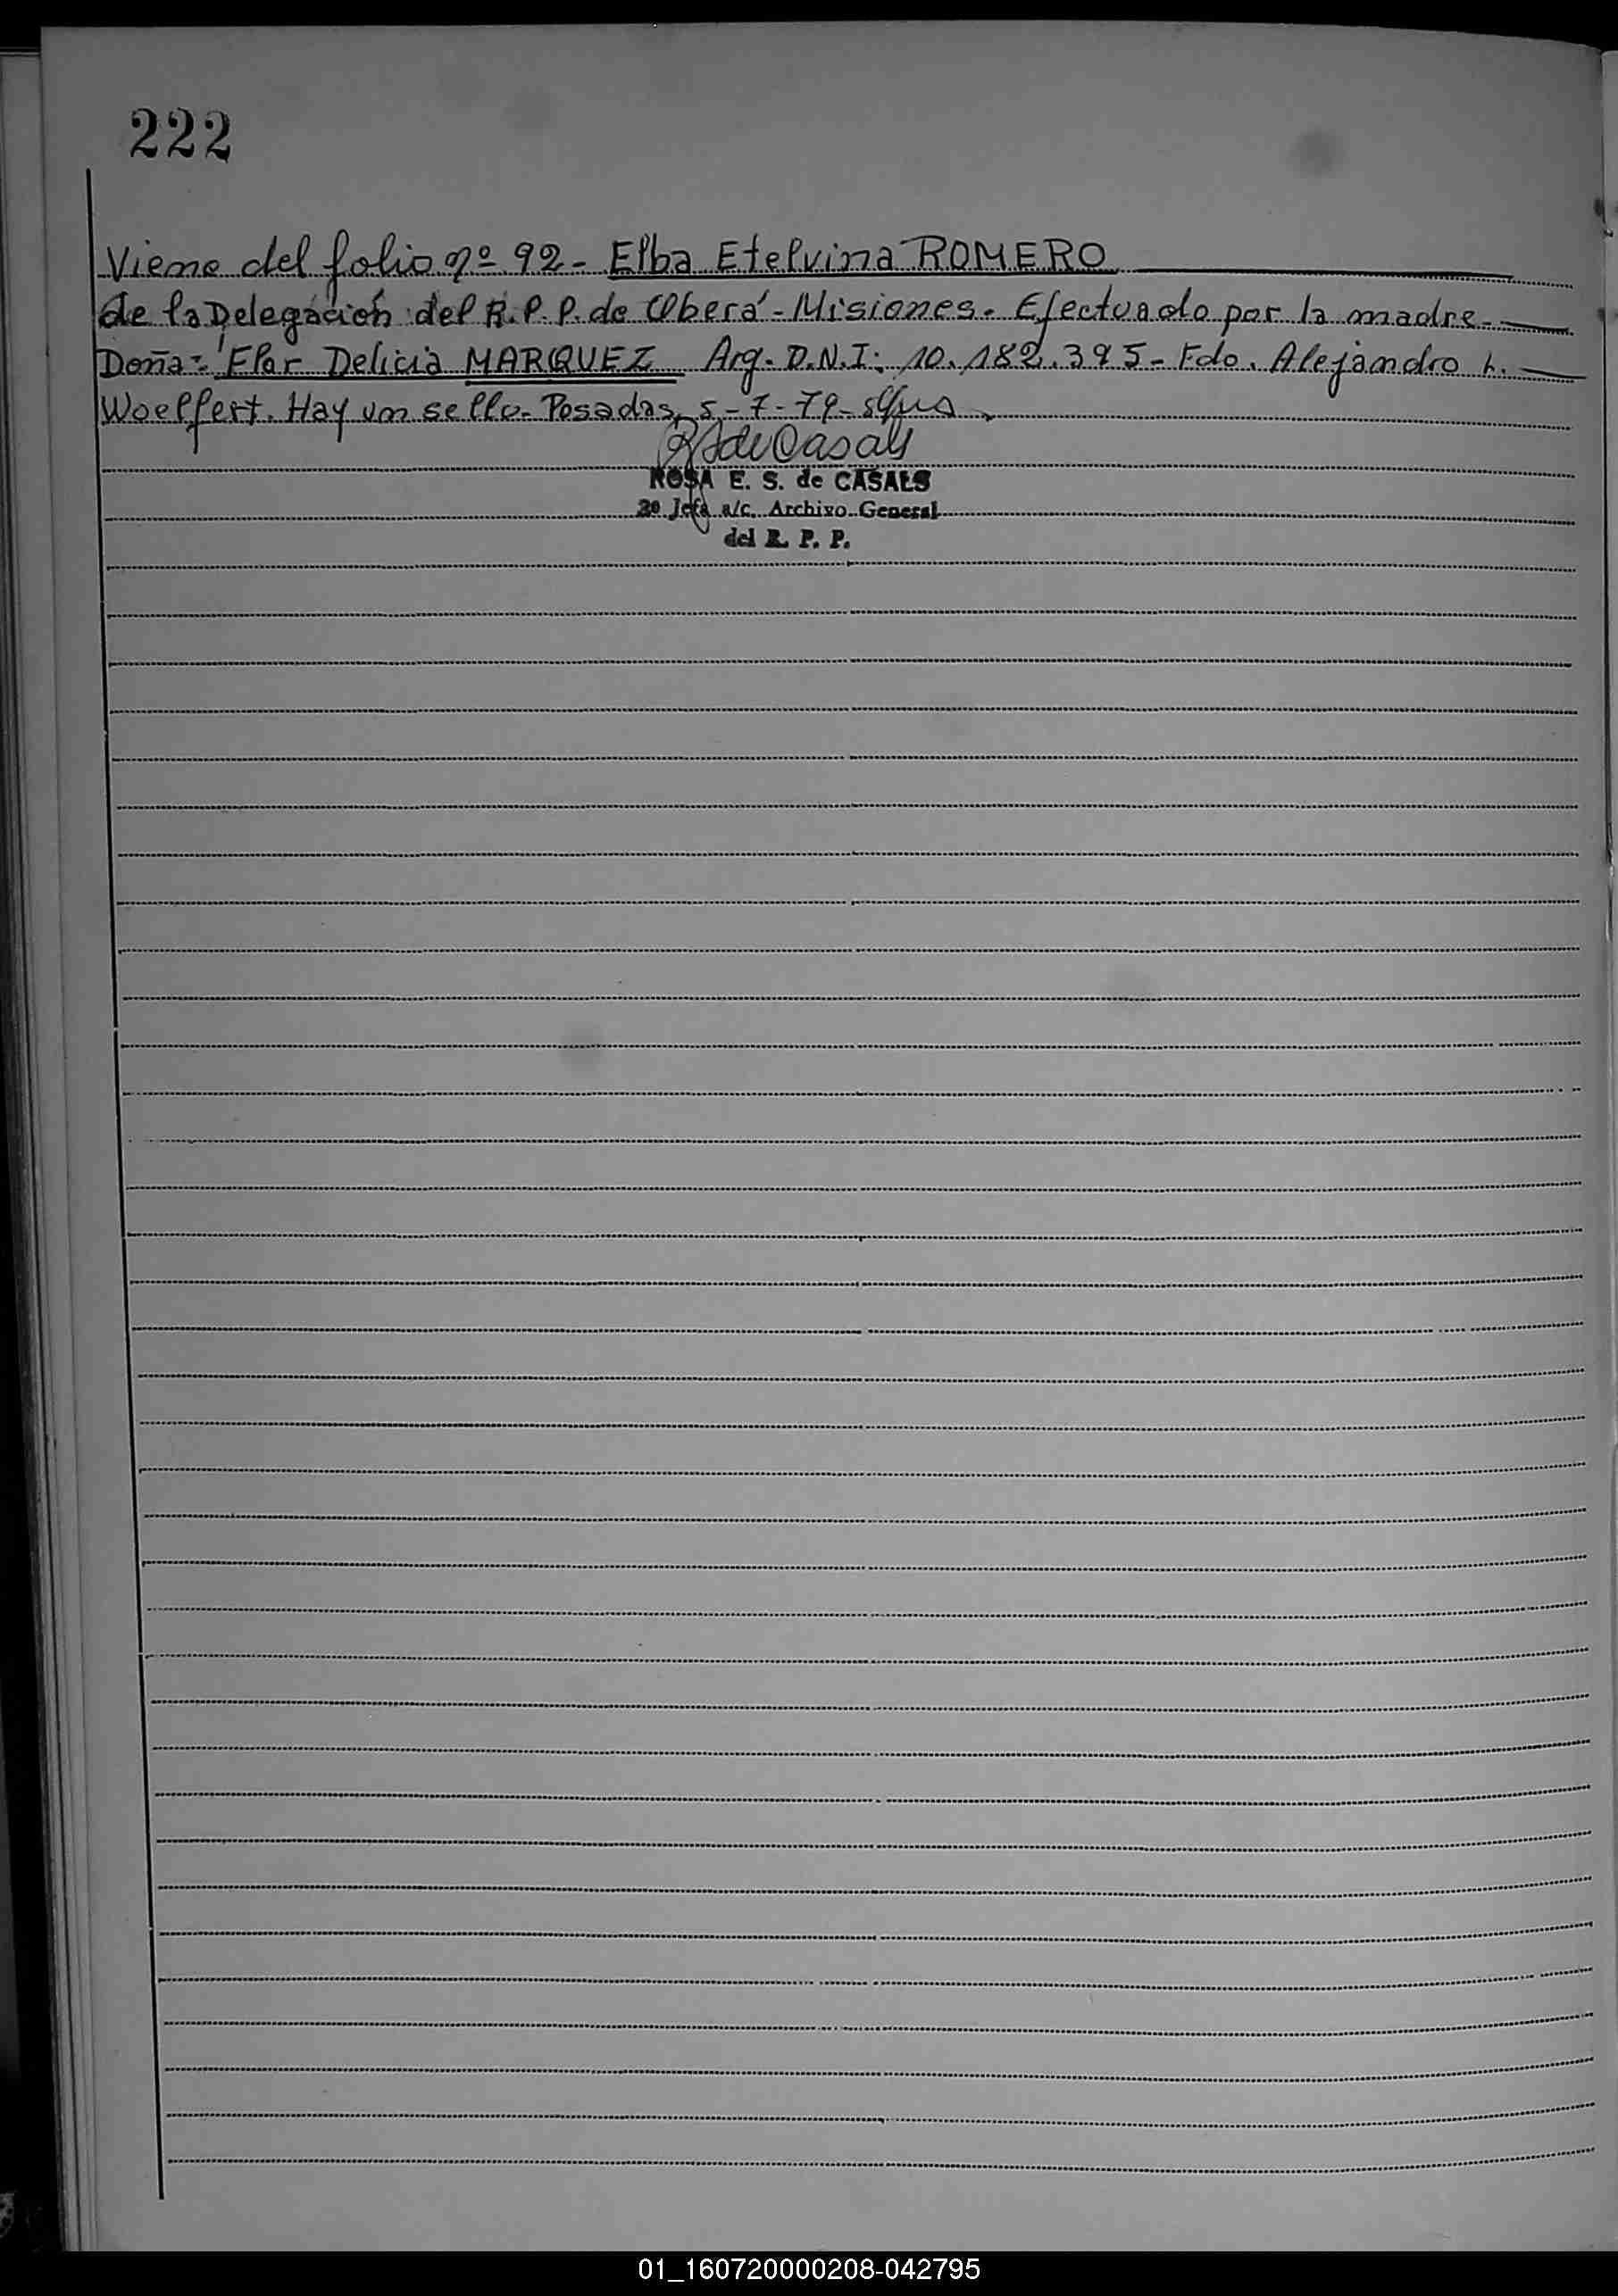 222
Viene del folio nº 92 - Elba Etelvina ROMERO
de la Delegación del R.P.P. de Oberá - Misiones. Efectuado por la madre.
Doña: Flor Delicia MARQUEZ Arg. D.N.I: 10.182.395 - Fdo. Alejandro L.
Woelfert. Hay un sello. Posadas, 5-7-79-
de Casals
ROSA E. S. de CASALS
2º Jefa a/c. Archivo General
del R. P. P.
01_160720000208-042795